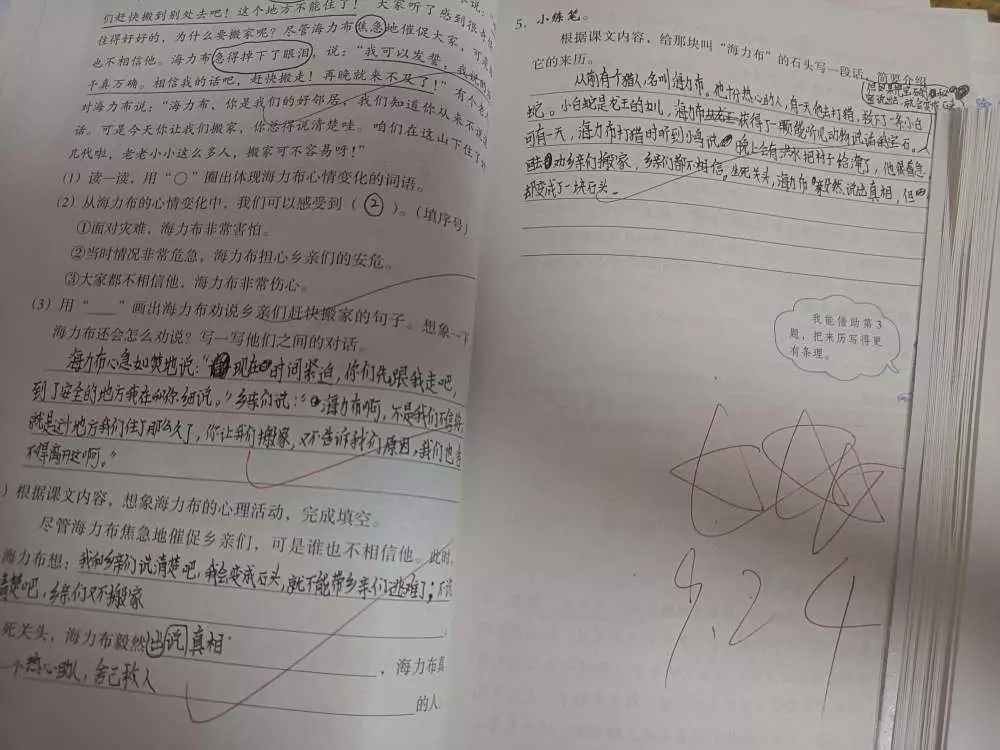 们赶快搬到别处去吧！这个地方不能住了！”大家听了感到很
住得好好的，为什么要搬家呢？尽管海力布焦急地催促大家，可是
也不相信他。海力布急得掉下了眼泪，说：“我可以发誓，我说的
千真万确。相信我的话吧，赶快搬走！再晚就来不及了！”有个老
对海力布说：“海力布，你是我们的好邻居，我们知道你从来不说
话。可是今天你让我们搬家，你总得说清楚哇。咱们在这山下住了
几代啦，老老小小这么多人，搬家可不容易呀！”
（1）读一读，用“○”圈出体现海力布心情变化的词语。
（2）从海力布的心情变化中，我们可以感受到（ ② ）。（填序号）
①面对灾难，海力布非常害怕。
②当时情况非常危急，海力布担心乡亲们的安危。
③大家都不相信他，海力布非常伤心。
（3）用“____”画出海力布劝说乡亲们赶快搬家的句子。想象一下
海力布还会怎么劝说？写一写他们之间的对话。
海力布心急如焚地说：“现在时间紧迫，你们先跟我走吧，
到了安全的地方我在和你细说。”乡亲们说：“海力布啊，不是我们不信你
就是这地方我们住了那么久了，你让我们搬家，又不告诉我们原因，我们也舍
不得离开这啊。”
）根据课文内容，想象海力布的心理活动，完成填空。
尽管海力布焦急地催促乡亲们，可是谁也不相信他。此时，
海力布想：我和乡亲们说清楚吧，我会变成石头，就不能带乡亲们逃难了；不说
清楚吧，乡亲们又不搬家
死关头，海力布毅然说真相，海力布真
个热心助人，舍己救人
的人
5. 小练笔。
根据课文内容，给那块叫“海力布”的石头写一段话，简要介绍
它的来历。
从前有个猎人，名叫海力布。他热心助人，有一天他去打猎，救下了一条小白
蛇。小白蛇是龙王的女儿，海力布获得了一颗能听见动物说话的宝石。
可有一天，海力布打猎时听到小鸟说晚上会有洪水把村子给淹了，他很着急
劝乡亲们搬家，乡亲们都不相信。生死关头，海力布毅然说出真相，但
却变成了一块石头。
我能借助第3
题，把来历写得更
有条理。
9.24